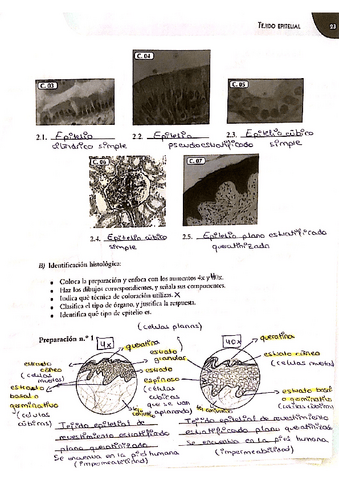 TEJIDO EPITELIAL 23
C. 03
C. 04
C. 05
2.1. Epitelio
cilíndrico simple
2.2. Epitelio
pseudoestratificado
2.3. Epitelio cúbico
simple
C. 06
C. 07
2.4. Epitelio cúbico
simple
2.5. Epitelio plano estratificado
queratinizado
B) Identificación histológica:
• Coloca la preparación y enfoca con los aumentos 4x y
• Haz los dibujos correspondientes, y señala sus componentes.
• Indica qué técnica de coloración utiliza. X
• Clasifica el tipo de órgano, y justifica la respuesta.
• Identifica qué tipo de epitelio es.
(celulas planas)
Preparación n.º 1
4x
queratina
40x
queratina
estrato
córneo
(celulas
muertas)
estrato
granuloso
estrato córneo
(celulas muertas)
estrato
basal o
germinativo
(células
cúbicas)
estrato
espinoso
(células
cúbicas
que se van
aplanando)
estrato basal
o germinativo
(células cúbicas)
Tejido epitelial de
revestimiento estratificado
plano queratinizado
Se encuentra en la piel humana
(impermeabilidad)
Tejido epitelial de revestimiento
estratificado plano queratinizado
Se encuentra en la piel humana
(impermeabilidad)